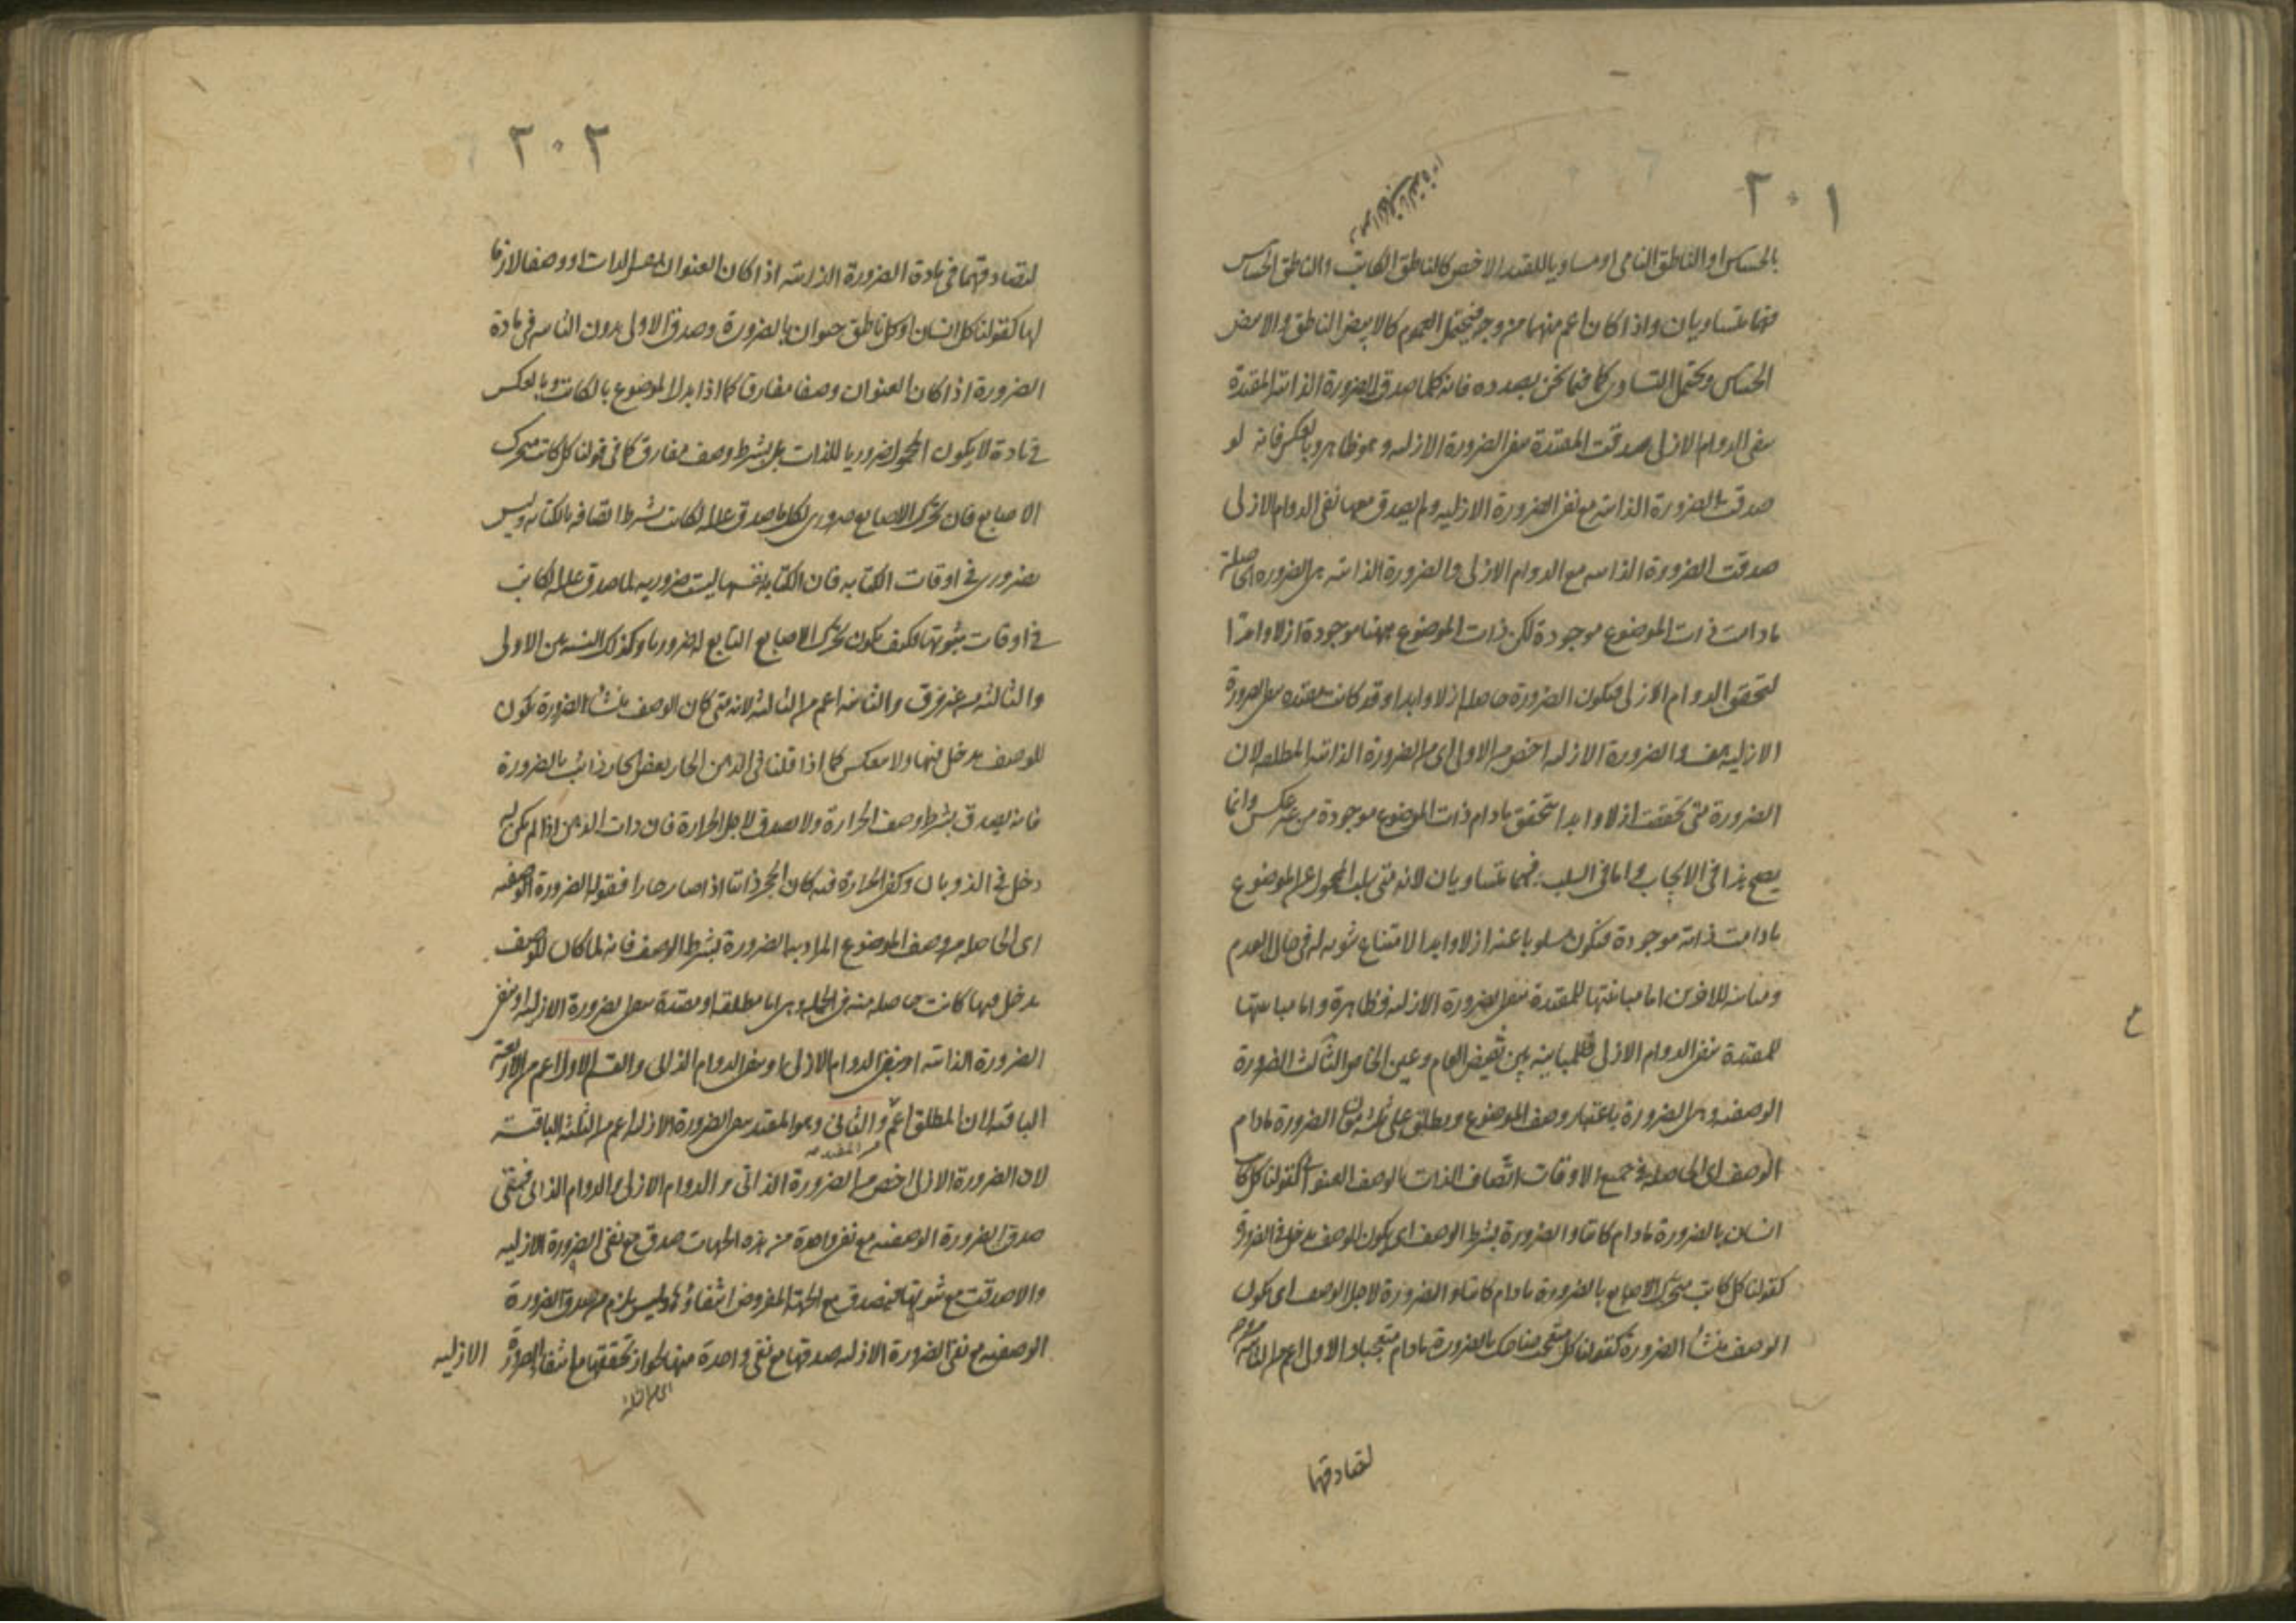 ٢٠١
بالحساس او الناطق النامى او مساويا للقيد الاخص كالناطق الكاتب والناطق الحساس
فهما متساويان واذا كان اعم منهما من وجه فيحتمل العموم كالابيض الناطق والابيض
الحساس ويحتمل التساوى كما فيما نحن بصدده فانه كلما صدق الضرورة الذاتية المقيدة
بنفى الدوام الازلى صدقت المقيدة بنفى الضرورة الازلية وهو ظاهر وبالعكس فانه لو
صدقت الضرورة الذاتية مع نفى الضرورة الازلية ولم يصدق معها نفى الدوام الازلى
صدقت الضرورة الذاتية مع الدوام الازلى والضرورة الذاتية هى الضرورة الحاصلة
مادامت ذات الموضوع موجودة لكن ذات الموضوع ههنا موجودة ازلا وابدا
لتحقق الدوام الازلى فيكون الضرورة حاصلة ازلا وابدا وقد كانت مقيدة بنفى الضرورة
الازلية هف والضرورة الازلية اخص من الاولى اى من الضرورة الذاتية المطلقة لان
الضرورة متى تحققت ازلا وابدا تتحقق مادام ذات الموضوع موجودة من غير عكس وانما
يصح هذا فى الايجاب واما فى السلب فهما متساويان لانه متى سلب المحمول عن الموضوع
مادامت ذاته موجودة فيكون مسلوبا عنه ازلا وابدا لامتناع ثبوته له فى حال العدم
ومباينة للاخرين اما مباينتها للمقيدة بنفى الضرورة الازلية فظاهرة واما مباينتها
للمقيدة بنفى الدوام الازلى فللمباينة بين نقيض العام وعين الخاص الثالث الضرورة
الوصفية وهى الضرورة باعتبار وصف الموضوع ويطلق على ثلثة معان الضرورة مادام
الوصف اى الحاصلة فى جميع الاوقات اتصاف الذات بالوصف العنوانى كقولنا كل كاتب
انسان بالضرورة مادام كاتبا والضرورة بشرط الوصف اى يكون للوصف مدخل فى الضرورة
كقولنا كل كاتب متحرك الاصابع بالضرورة مادام كاتبا والضرورة لاجل الوصف اى يكون
الوصف منشأ الضرورة كقولنا كل متعجب ضاحك بالضرورة مادام متعجبا والاولى اعم من الثانية
لتصادقهما
٢٠٢
لتصادقهما فى مادة الضرورة الذاتية اذا كان العنوان نفس الذات او وصفا لازما
لها كقولنا كل انسان او كل ناطق حيوان بالضرورة وصدق الاولى بدون الثانية فى مادة
الضرورة اذا كان العنوان وصفا مفارقا كما اذا بدل الموضوع بالكاتب وبالعكس
فى مادة لا يكون المحمول ضروريا للذات بل بشرط وصف مفارق كما فى قولنا كل كاتب متحرك
الاصابع فان تحرك الاصابع ضرورى لكل ما صدق عليه الكاتب بشرط اتصافه بالكتابة وليس
بضرورى فى اوقات الكتابة فان الكتابة نفسها ليست ضرورية لما صدق عليه الكاتب
فى اوقات ثبوتها فكيف يكون تحرك الاصابع التابع لها ضروريا وكذلك النسبة بين الاولى
والثالثة من غير فرق والثانية اعم من الثالثة لانه متى كان الوصف منشأ الضرورة يكون
للوصف مدخل فيها ولا ينعكس كما اذا قلنا فى الدهن الحار بعض الحار ذائب بالضرورة
فانه يصدق بشرط وصف الحرارة ولا يصدق لاجل الحرارة فان ذات الدهن اذا لم يكن له
دخل فى الذوبان وكفى الحرارة فيه كان الحجر ذائبا اذا صار حارا فقوله الضرورة الوصفية
اى الحاصلة من وصف الموضوع المراد بها الضرورة بشرط الوصف فانه لما كان للوصف
مدخل فيها كانت حاصلة منه فى الجملة وهى اما مطلقة او مقيدة بنفى الضرورة الازلية او بنفى
الضرورة الذاتية او بنفى الدوام الازلى او بنفى الدوام الذاتى والقسم الاول اعم من الاربعة
الباقية لان المطلق اعم والثانى وهو المقيد بنفى الضرورة الازلية اعم من الثلثة الباقية
لان الضرورة الازلية اخص من الضرورة الذاتى والدوام الازلى والدوام الذاتى فمتى
صدق الضرورة الوصفية مع نفى واحدة من هذه الجهات صدق مع نفى الضرورة الازلية
والا صدقت مع ثبوتها فيصدق مع الجهة المفروض انتفاؤها وليس يلزم من صدق الضرورة
الوصفية مع نفى الضرورة الازلية صدقها مع نفى واحدة منها لجواز تحققها مع انتفاء الضرورة الازلية